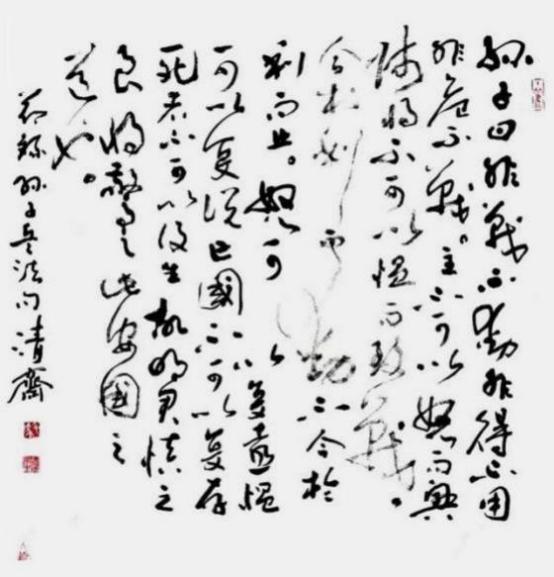 孫子曰非戰不動非得不用
非危不戰。主不可以怒而興
師將不可以愠而致戰。
合於利而動不合於
利而止。怒可以复喜愠
可以复悦亡國不可以复存
死者不可以复生故明君慎之
良將警之此安國之
道也。
節錄孫子兵法句清齋